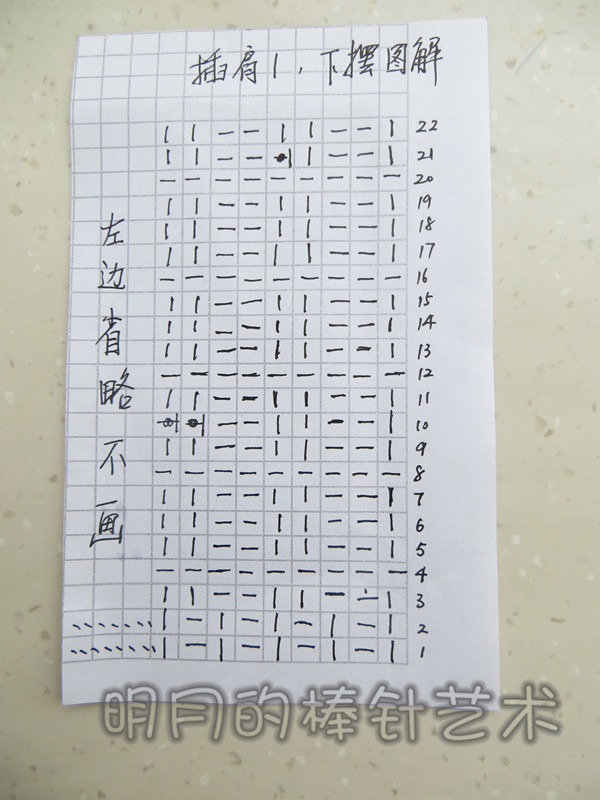 插肩1,下摆图解
| | — — | | — — | 22
| | — — •| | — — | 21
— — — — — — — — — 20
| | — — | | — — | 19
| | — — | | — — | 18
| | — — | | — — | 17
— — — — — — — — — 16
| | — — | | — — | 15
| | — — | | — — | 14
| | — — | | — — | 13
— — — — — — — — — 12
| | — — | | — — | 11
•| •| — — | | — — | 10
| | — — | | — — | 9
— — — — — — — — — 8
| | — — | | — — | 7
| | — — | | — — | 6
| | — — | | — — | 5
— — — — — — — — — 4
| | — — | | — — | 3
、、、、、、、 | — | — | — | — | 2
、、、、、、、 | — | — | — | — | 1
左边省略不画
明月的棒针艺术